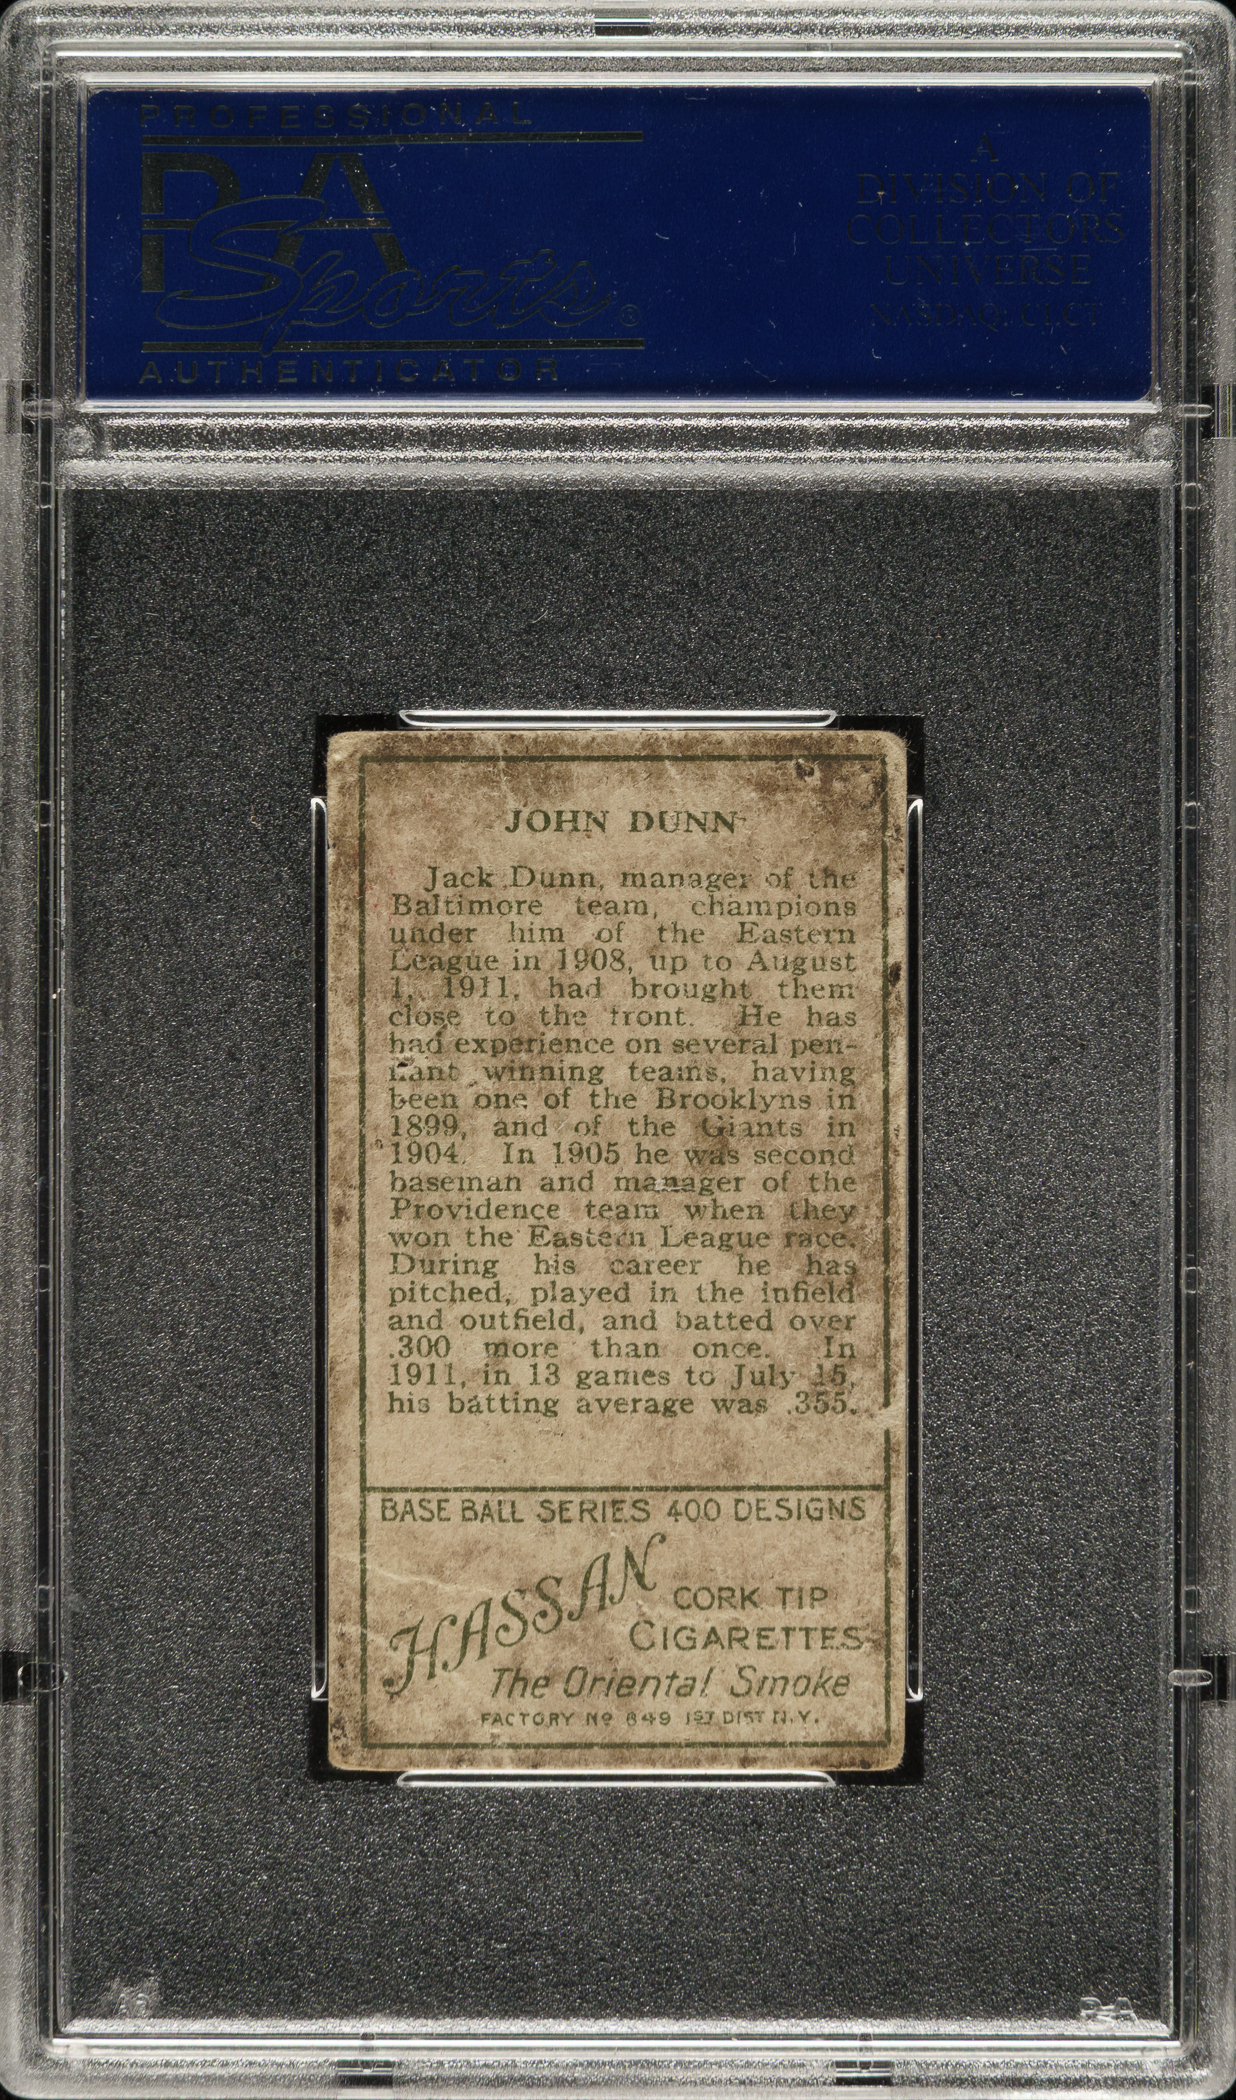 PROFESSIONAL
PSA
Sports®
AUTHENTICATOR
A
DIVISION OF
COLLECTORS
UNIVERSE
NASDAQ: CLCT
JOHN DUNN
Jack Dunn, manager of the
Baltimore team, champions
under him of the Eastern
League in 1908, up to August
1, 1911, had brought them
close to the front. He has
had experience on several pen-
nant winning teams, having
been one of the Brooklyns in
1899, and of the Giants in
1904. In 1905 he was second
baseman and manager of the
Providence team when they
won the Eastern League race.
During his career he has
pitched, played in the infield
and outfield, and batted over
.300 more than once. In
1911, in 13 games to July 15,
his batting average was .355.
BASE BALL SERIES 400 DESIGNS
HASSAN
CORK TIP
CIGARETTES
The Oriental Smoke
FACTORY No 649 1ST DIST N.Y.
PSA